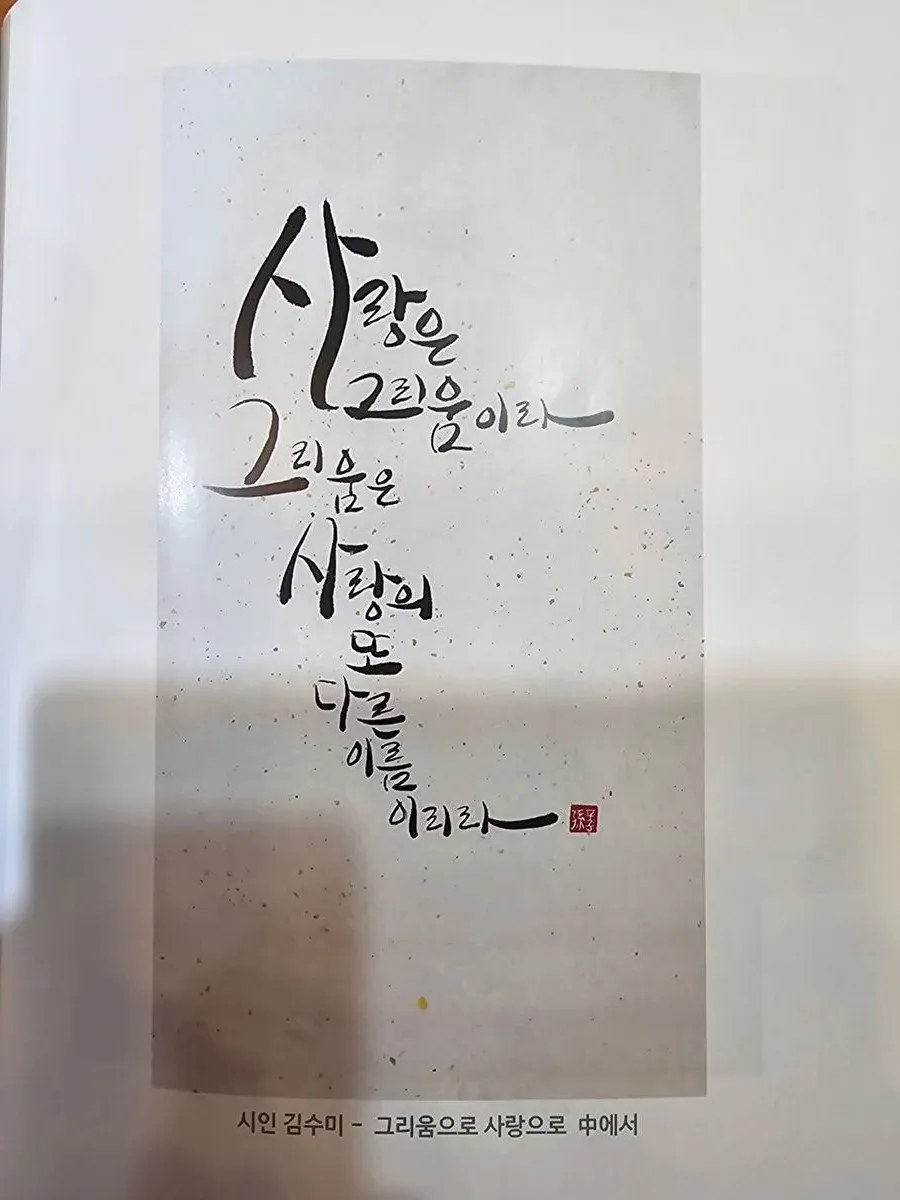 사랑은
그리움이라
그리움은
사랑의
또
다른
이름
이리라
시인 김수미 - 그리움으로 사랑으로 中에서